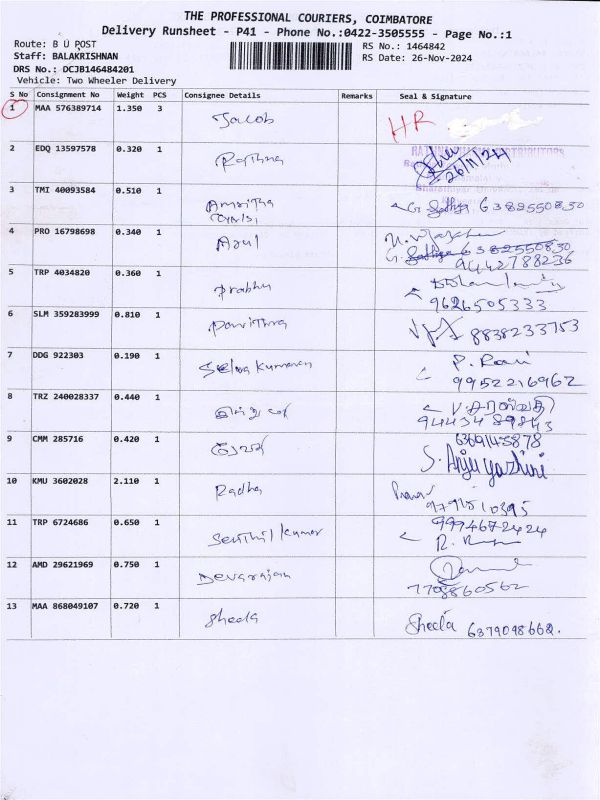 THE PROFESSIONAL COURIERS, COIMBATORE
Delivery Runsheet - P41 - Phone No.:0422-3505555 - Page No.:1
Route: B U POST
RS No.: 1464842
Staff: BALAKRISHNAN
RS Date: 26-Nov-2024
DRS No.: DCJB146484201
Vehicle: Two Wheeler Delivery
S No Consignment No Weight PCS Consignee Details Remarks Seal & Signature
1 MAA 576389714 1.350 3 Jacob HR
2 EDQ 13597578 0.320 1 Rathna 26/11/24
3 TMI 40093584 0.510 1 Amritha G. Sathya 6382550830
4 PRO 16798698 0.340 1 Arul
G. Sathya 6382550830
9442788236
5 TRP 4034820 0.360 1 Prabhu
9626505333
6 SLM 359283999 0.810 1 Pavithra 8838233753
7 DDG 922303 0.190 1 Selva kumaran P. Rani
9952216962
8 TRZ 240028337 0.440 1 V. சரஸ்வதி
9443489843
9 CMM 285716 0.420 1 6369145878
S. Anju yazhini
10 KMU 3602028 2.110 1 Radha
9791510395
11 TRP 6724686 0.650 1 Senthil kumar 9994672424
12 AMD 29621969 0.750 1 Devarajan
7708860562
13 MAA 868049107 0.720 1 Sheela Sheela 6379098662.